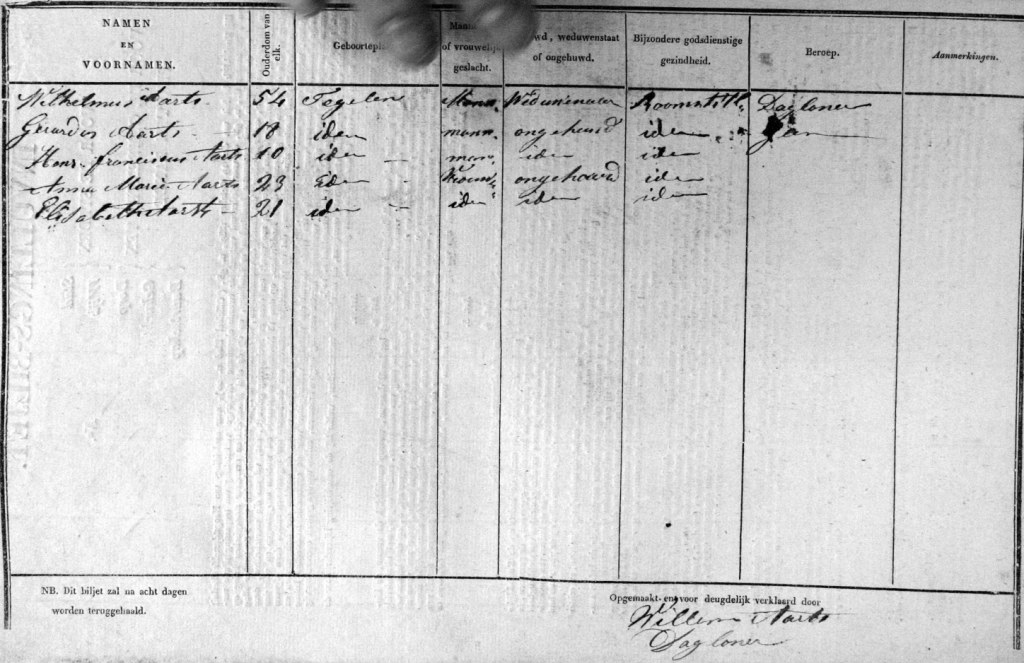 NAMEN EN VOORNAMEN. Ouderdom van elk. of vrouwelijk geslacht. weduwenstaat of ongehuwd. Bijzondere godsdienstige gezindheid. Beroep. Aanmerkingen.
Wilhelmus Aarts 54 Tegelen Mann. Weduwenaar Daglooner
Gerardus Aarts 18 idem mann. ongehuwd idem
Henr. franciscus Aarts 10 idem man. idem idem
Anna Maria Aarts 23 idem Vrouw ongehouwd idem
Elisabeth Aarts 21 idem idem idem idem
NB. Dit biljet zal na acht dagen
worden teruggehaald.
Opgemaakt en voor deugdelijk verklaard door
Willem Aarts
Dagloner